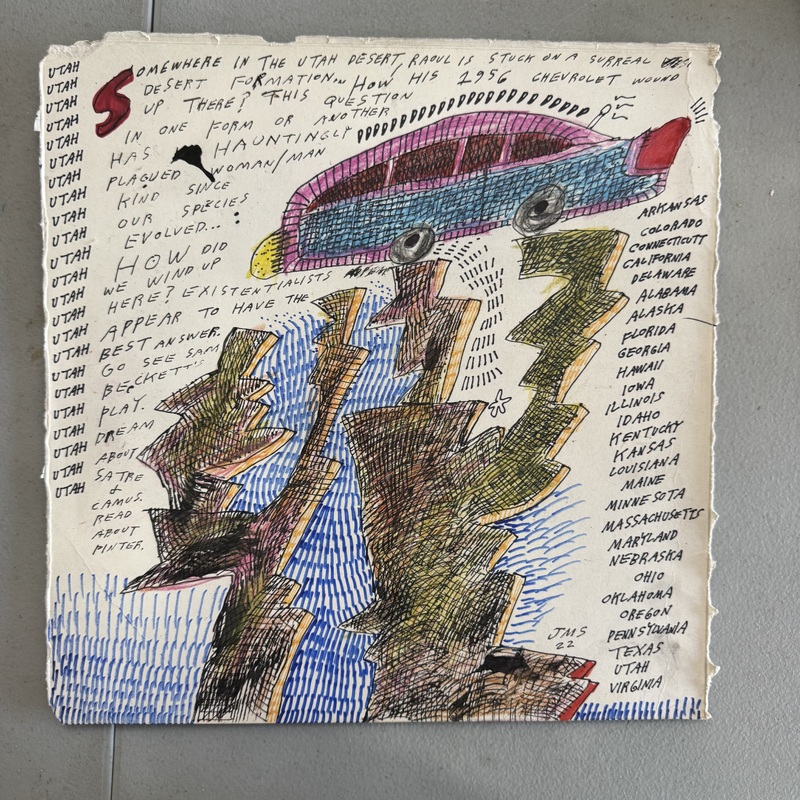 UTAH
UTAH
UTAH
UTAH
UTAH
UTAH
UTAH
UTAH
UTAH
UTAH
UTAH
UTAH
UTAH
UTAH
UTAH
UTAH
UTAH
UTAH
UTAH
UTAH
UTAH
UTAH
UTAH
SOMEWHERE IN THE UTAH DESERT, RAOUL IS STUCK ON A SURREAL
DESERT FORMATION... HOW HIS 1956 CHEVROLET WOUND
UP THERE? THIS QUESTION
IN ONE FORM OR ANOTHER
HAS HAUNTINGLY
PLAGUED WOMAN/MAN
KIND SINCE
OUR SPECIES
EVOLVED...
HOW DID
WE WIND UP
HERE? EXISTENTIALISTS
APPEAR TO HAVE THE
BEST ANSWER.
GO SEE SAM
BECKETT'S
PLAY.
DREAM
ABOUT
SATRE
&
CAMUS.
READ
ABOUT
PINTER.
ARKANSAS
COLORADO
CONNECTICUTT
CALIFORNIA
DELAWARE
ALABAMA
ALASKA
FLORIDA
GEORGIA
HAWAII
IOWA
ILLINOIS
IDAHO
KENTUCKY
KANSAS
LOUISIANA
MAINE
MINNESOTA
MASSACHUSETTS
MARYLAND
NEBRASKA
OHIO
OKLAHOMA
OREGON
PENNSYLVANIA
TEXAS
UTAH
VIRGINIA
JMS
22